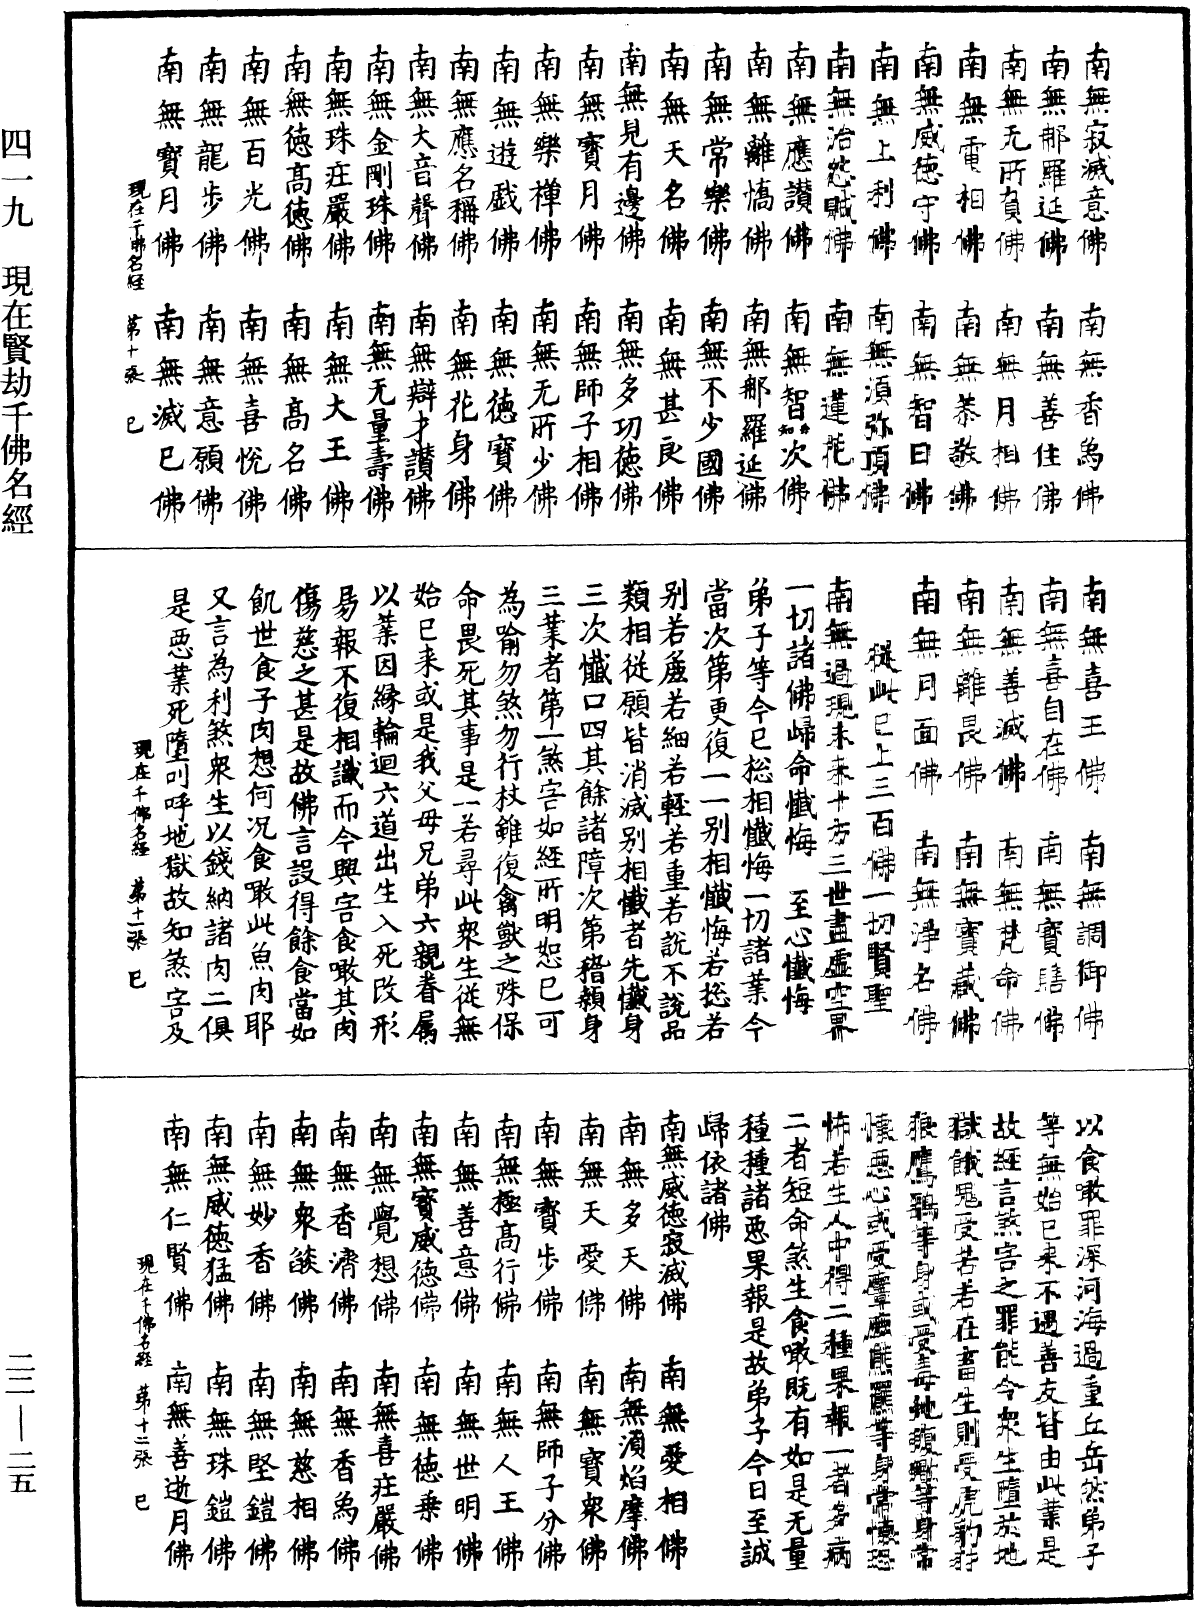 四一九　現在賢劫千佛名經
二二—二五
南無寂滅意佛　南無香烏佛
南無那羅延佛　南無善住佛
南無无所負佛　南無月相佛
南無電相佛　南無恭敬佛
南無威德守佛　南無智日佛
南無上利佛　南無須弥頂佛
南無治怨賊佛　南無蓮花佛
南無應讃佛　南無智次佛
南無離憍佛　南無那羅延佛
南無常樂佛　南無不少國佛
南無天名佛　南無甚良佛
南無見有邊佛　南無多功德佛
南無寳月佛　南無師子相佛
南無樂禅佛　南無无所少佛
南無遊戲佛　南無德寳佛
南無應名稱佛　南無花身佛
南無大音聲佛　南無辯才讃佛
南無金剛珠佛　南無无量壽佛
南無珠庄嚴佛　南無大王佛
南無德高德佛　南無高名佛
南無百光佛　南無喜悅佛
南無龍步佛　南無意願佛
南無寳月佛　南無滅已佛
現在千佛名経　第十張　巳
南無喜王佛　南無調御佛
南無喜自在佛　南無寳髻佛
南無善滅佛　南無梵命佛
南無離畏佛　南無寳藏佛
南無月面佛　南無淨名佛
從此已上三百佛一切賢聖
南無過現未来十方三世盡虛空界
一切諸佛歸命懺悔　至心懺悔
弟子等今已捴相懺悔一切諸業今
當次第更復一一别相懺悔若捴若
别若麁若細若輕若重若說不說品
類相從願皆消滅别相懺者先懺身
三次懺口四其餘諸障次第稽顙身
三業者第一煞害如經所明恕已可
為喻勿煞勿行杖雖復禽獸之殊保
命畏死其事是一若尋此衆生從無
始已来或是我父母兄弟六親眷屬
以業因緣輪迴六道出生入死改形
易報不復相識而今興害食噉其肉
傷慈之甚是故佛言設得餘食當如
飢世食子肉想何况食噉此魚肉耶
又言為利煞衆生以錢納諸肉二俱
是惡業死墮叫呼地獄故知煞害及
現在千佛名経　第十一張　巳
以食噉罪深河海過重丘岳然弟子
等無始已来不遇善友皆由此業是
故經言煞害之罪能令衆生墮於地
獄餓鬼受苦若在畜生則受虎豹豺
狼鷹鷂等身或受毒虵蝮蝎等身常
懷惡心或受麞鹿熊羆等身常懷恐
怖若生人中得二種果報一者多病
二者短命煞生食噉既有如是无量
種種諸惡果報是故弟子今日至誠
歸依諸佛
南無威德寂滅佛　南無愛相佛
南無多天佛　南無須焰摩佛
南無天愛佛　南無寳衆佛
南無寳步佛　南無師子分佛
南無極高行佛　南無人王佛
南無善意佛　南無世明佛
南無寳威德佛　南無德乗佛
南無覺想佛　南無喜庄嚴佛
南無香濟佛　南無香烏佛
南無衆燄佛　南無慈相佛
南無妙香佛　南無堅鎧佛
南無威德猛佛　南無珠鎧佛
南無仁賢佛　南無善逝月佛
現在千佛名経　第十二張　巳